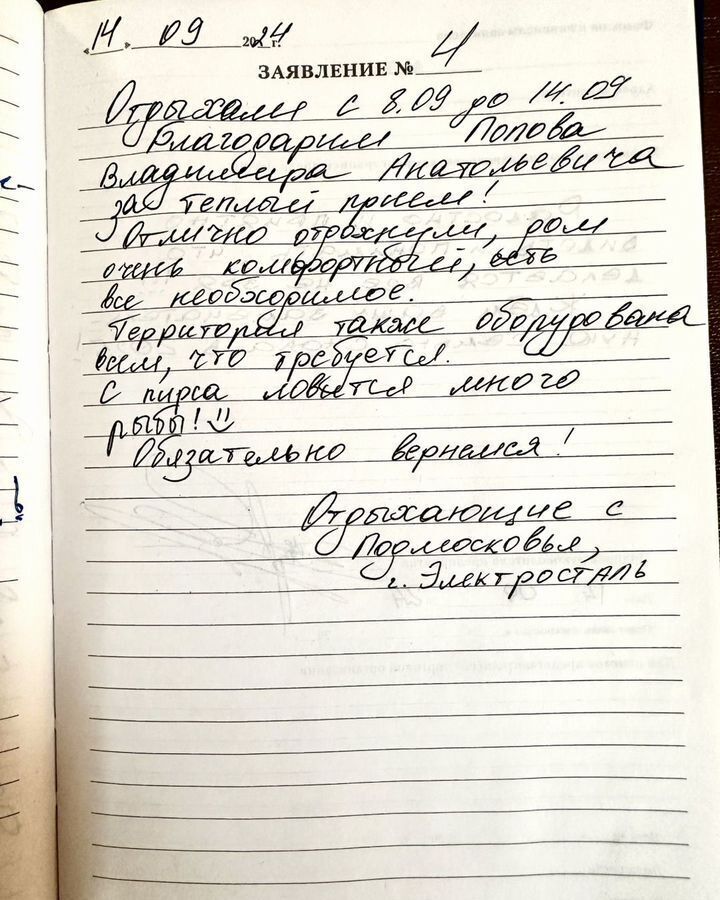 «14» 09 2024 г.
ЗАЯВЛЕНИЕ № 4
Отдыхали с 8.09 до 14.09
Благодарим Попова
Владимира Анатольевича
за теплый прием!
Отлично отдохнули, дом
очень комфортный, есть
все необходимое.
Территория также оборудована
всем, что требуется.
С пирса ловится много
рыбы!
Обязательно вернемся!
Отдыхающие с
Подмосковья,
г. Электросталь